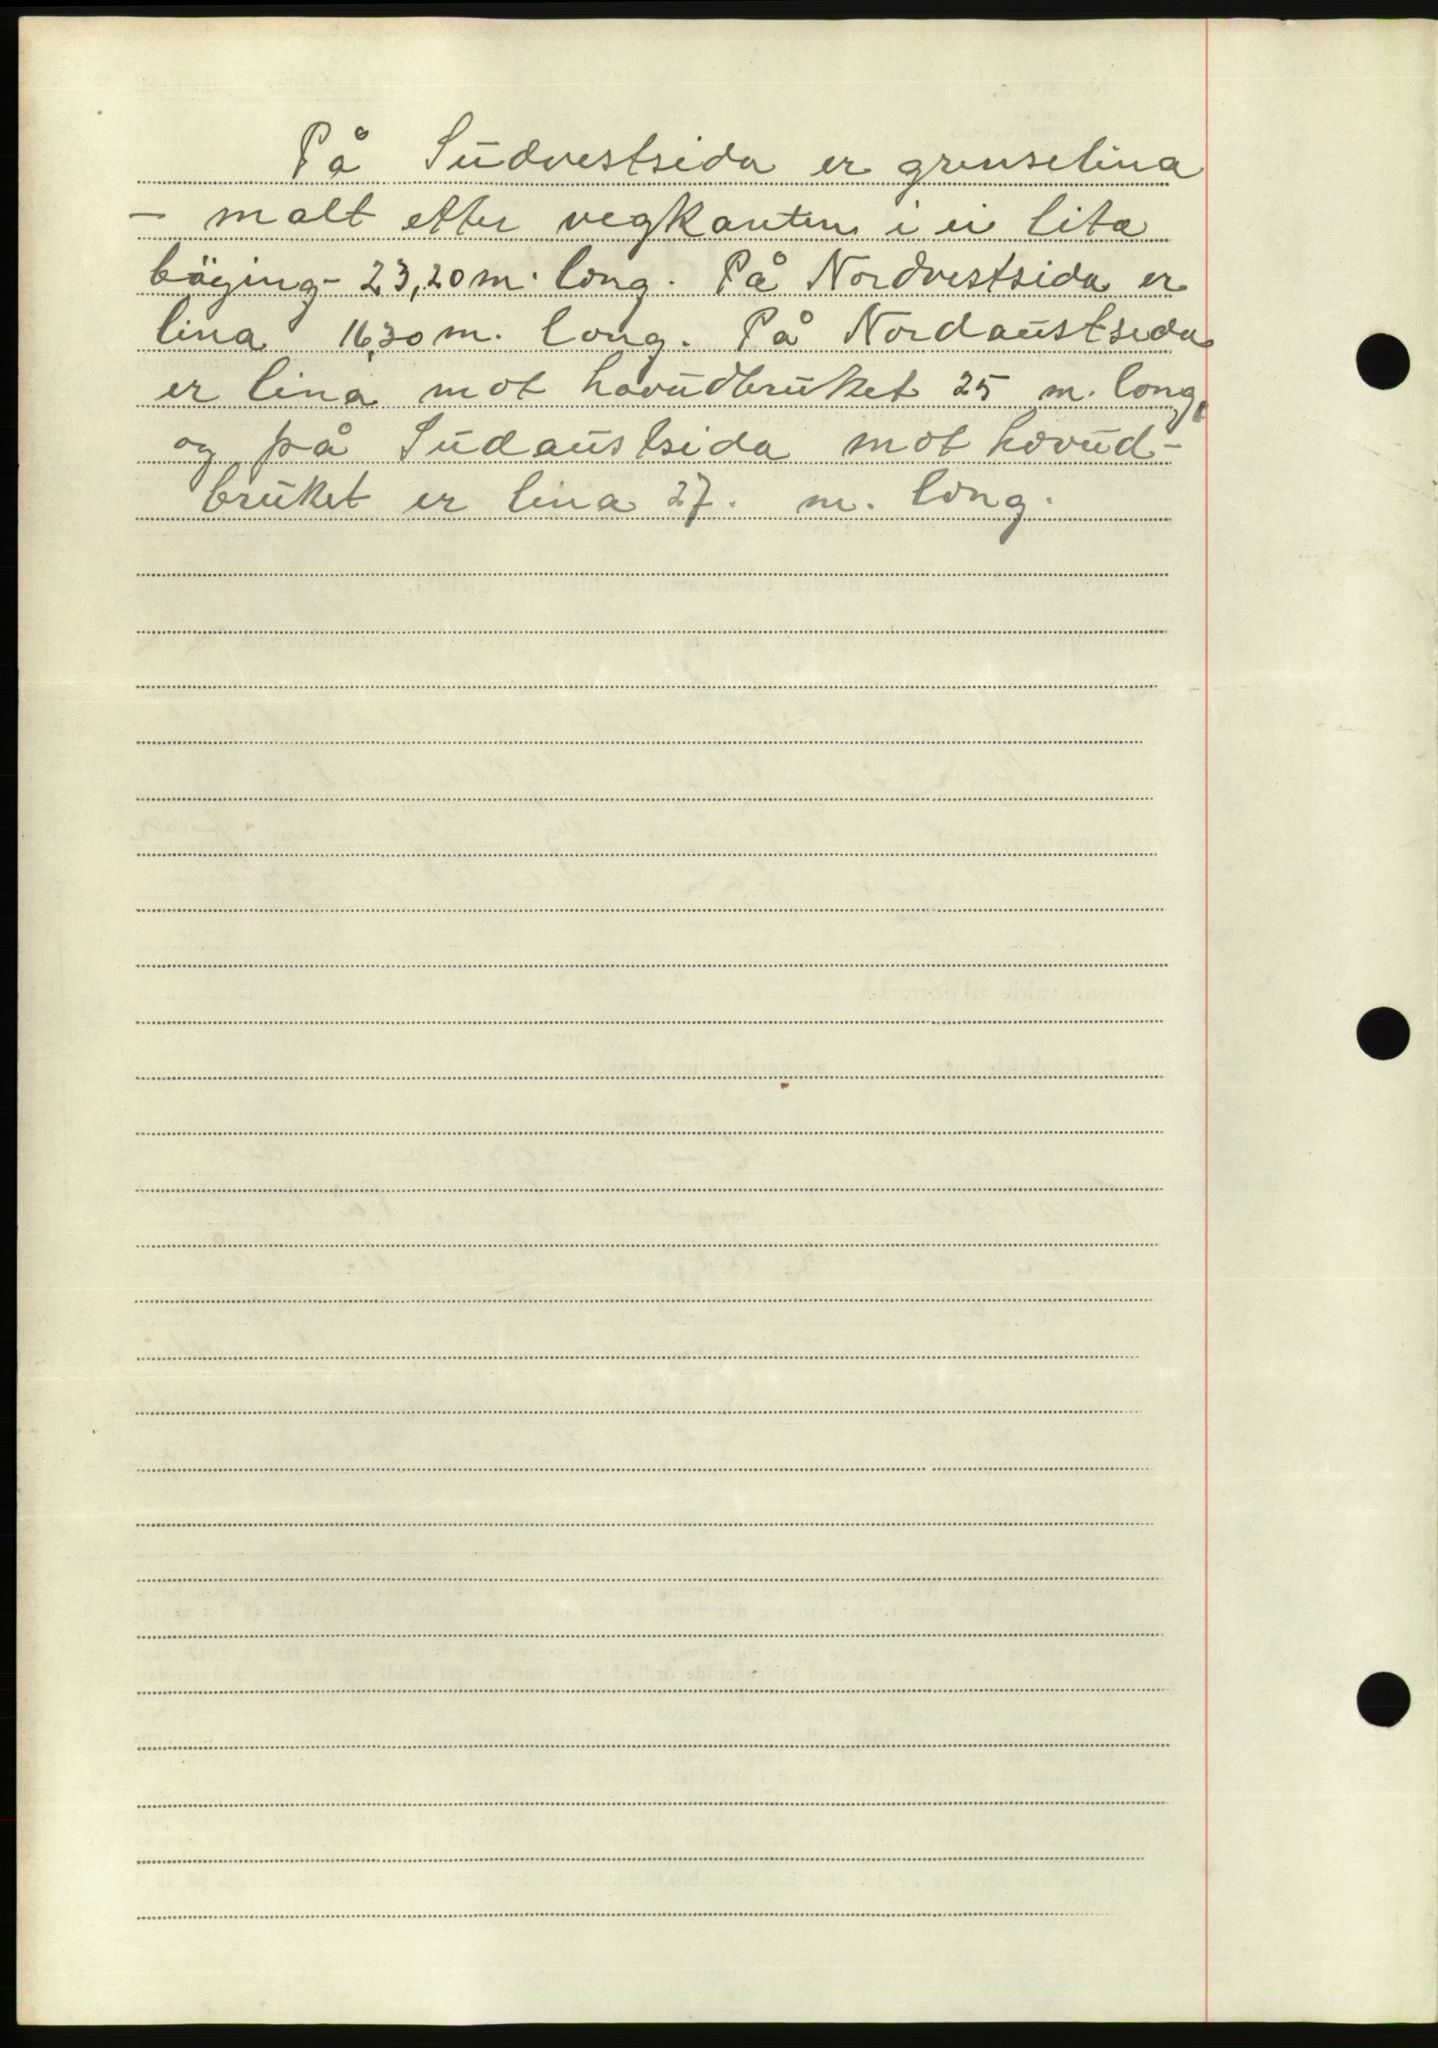 På Sudvestsida er grenselina
- malt etter vegkanten i ei lita
böying - 23,20 m. long. På Nordvestsida er
lina 16,30 m. long. På Nordaustsida
er lina mot hovudbruket 25 m. long,
og på Sudaustsida mot hovud-
bruket er lina 27. m. long.